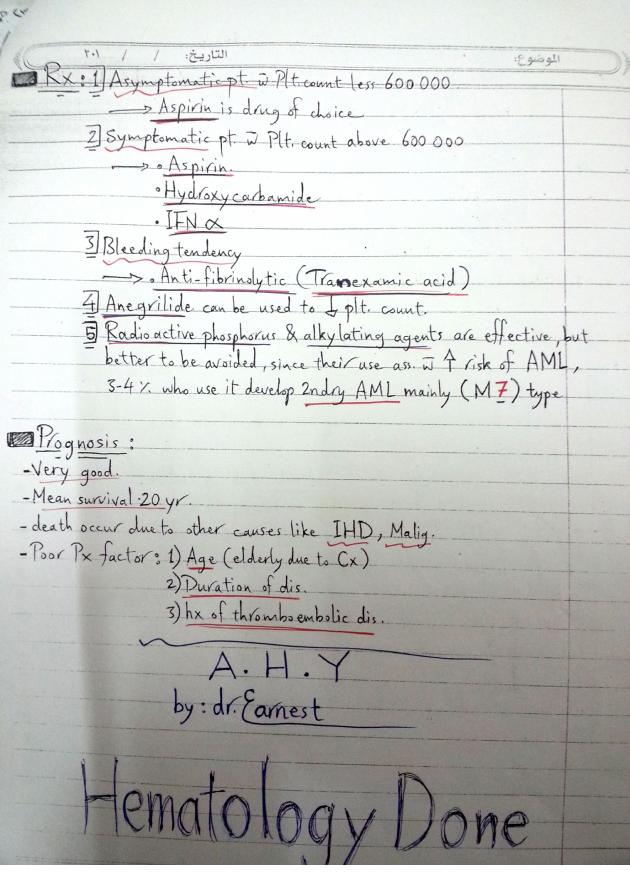 الموضوع: التاريخ: / / ٢٠١
Rx: 1] Asymptomatic pt. w̄ Plt. count less 600 000
→ Aspirin is drug of choice
2] Symptomatic pt. w̄ Plt. count above 600 000
→ • Aspirin.
• Hydroxycarbamide
• IFN α
3] Bleeding tendency
→ • Anti-fibrinolytic (Tranexamic acid)
4] Anegrilide can be used to ↓ plt. count.
5] Radioactive phosphorus & alkylating agents are effective, but
better to be avoided, since their use ass. w̄ ↑ risk of AML,
3-4% who use it develop 2ndry AML mainly (M7) type
Prognosis:
-Very good.
-Mean survival 20 yr.
- death occur due to other causes like IHD, Malig.
-Poor Px factor: 1) Age (elderly due to Cx)
2) Duration of dis.
3) hx of thromboembolic dis.
A.H.Y
by: dr. Earnest
Hematology Done